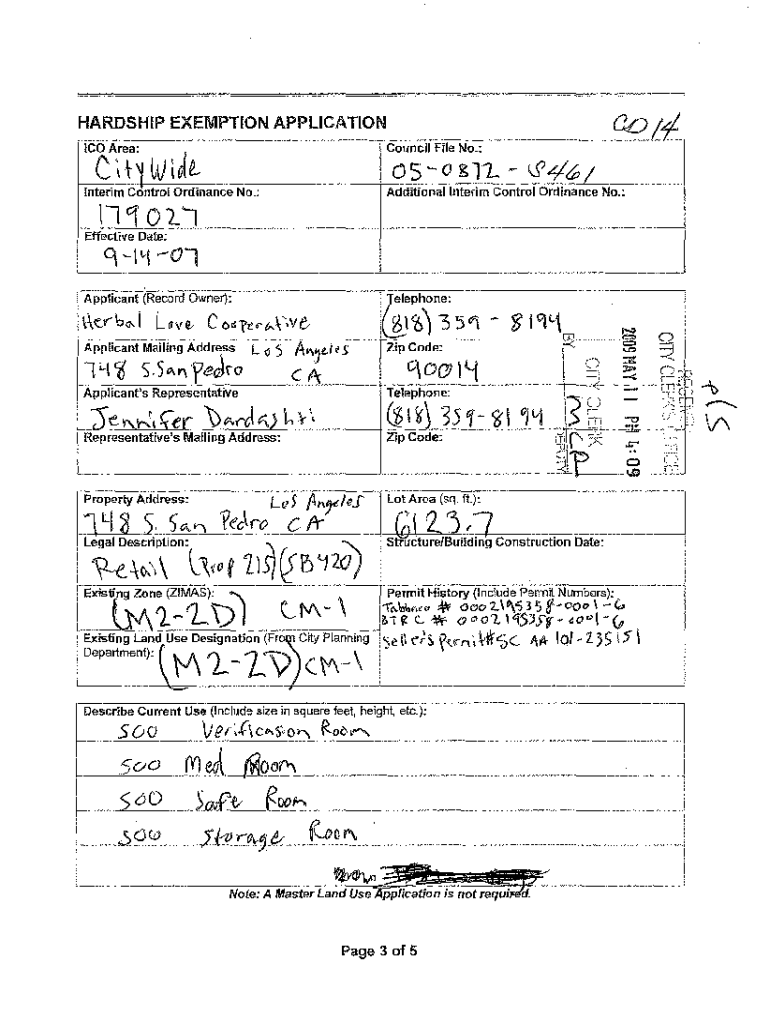 HARDSHIP EXEMPTION APPLICATION
CD 14
ICO Area:
CityWide
Council File No.:
05-0872 - S461
Interim Control Ordinance No.:
179027
Additional Interim Control Ordinance No.:
Effective Date:
9-14-07
Applicant (Record Owner):
Herbal Love Cooperative
Telephone:
(818) 359 - 8194
Applicant Mailing Address Los Angeles
748 S. San Pedro CA
Zip Code:
90014
Applicant's Representative
Jennifer Dardashti
Telephone:
(818) 359-8194
Representative's Mailing Address:
Zip Code:
BY
CITY CLERK
DEPUTY
2009 MAY 11 PM 4:09
RECEIVED
CITY CLERK'S OFFICE
Property Address: Los Angeles
748 S. San Pedro CA
Lot Area (sq. ft.):
6123.7
Legal Description:
Retail (Prop 215)(SB420)
Structure/Building Construction Date:
Existing Zone (ZIMAS):
(M2-2D) CM-1
Permit History (Include Permit Numbers):
Tabbaco # 0002195358-0001-6
BTRC # 0002195358-0001-6
Seller's Permit# SC AA 101-235151
Existing Land Use Designation (From City Planning
Department):
(M2-2D) CM-1
Describe Current Use (Include size in square feet, height, etc.):
500 Verificasion Room
500 Med Room
500 Safe Room
500 Storage Room
Note: A Master Land Use Application is not required.
Page 3 of 5